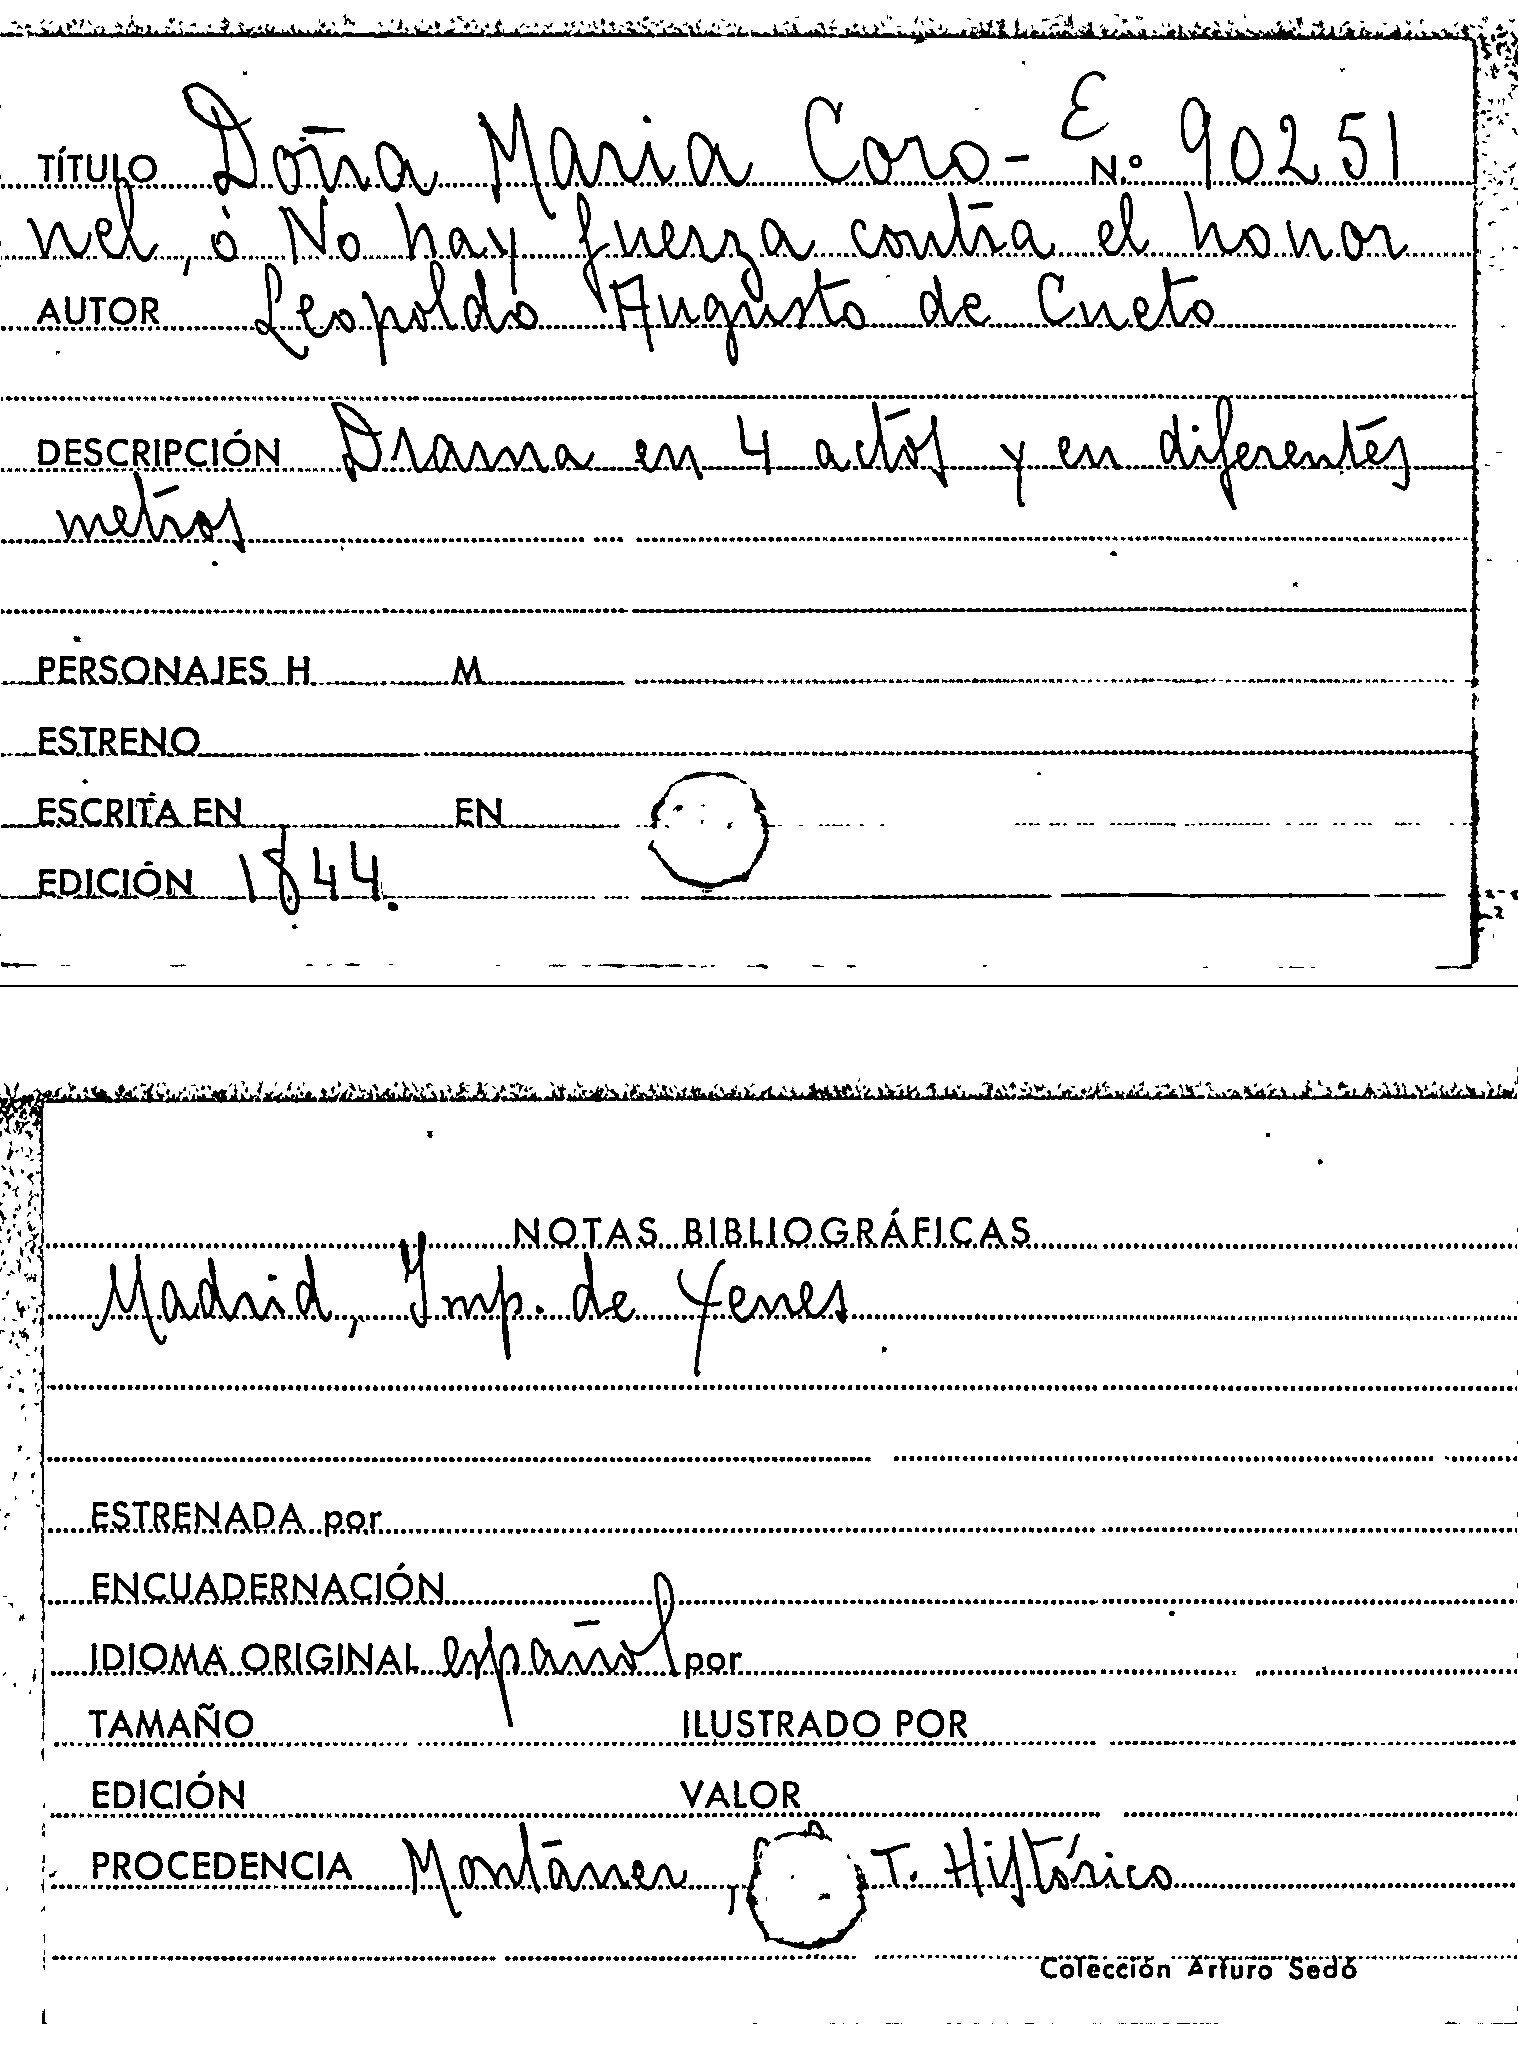 TÍTULO Doña Maria Coro- E N.º 90251
nel, ó No hay fuerza contra el honor
AUTOR Leopoldo Augusto de Cueto
DESCRIPCIÓN Drama en 4 actos y en diferentes
metros
PERSONAJES H M
ESTRENO
ESCRITA EN EN
EDICIÓN 1844.
NOTAS BIBLIOGRÁFICAS
Madrid, Imp. de Yenes
ESTRENADA por
ENCUADERNACIÓN
IDIOMA ORIGINAL español por
TAMAÑO ILUSTRADO POR
EDICIÓN VALOR
PROCEDENCIA Montaner, T. Histórico
Colección Arturo Sedó